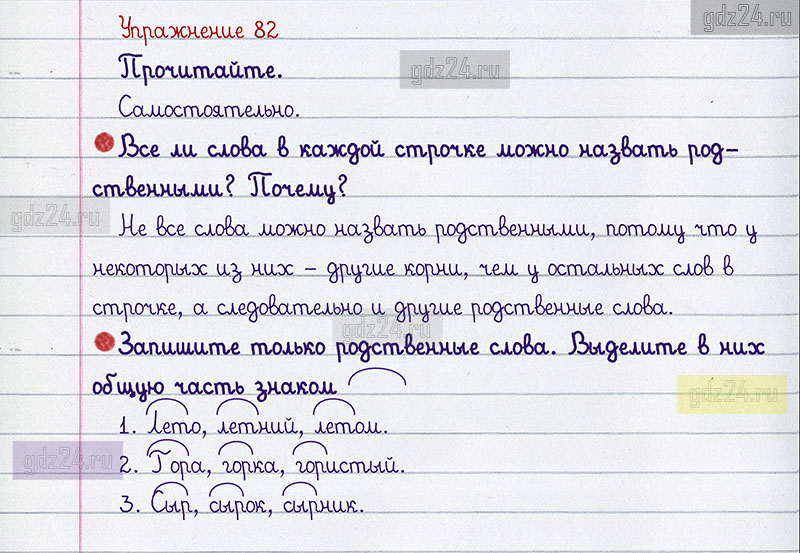 gdz24.ru
Упражнение 82
Прочитайте.
gdz24.ru
Самостоятельно.
Все ли слова в каждой строчке можно назвать род-
ственными? Почему?
gdz24.ru
Не все слова можно назвать родственными, потому что у
некоторых из них – другие корни, чем у остальных слов в
строчке, а следовательно и другие родственные слова.
gdz24.ru
Запишите только родственные слова. Выделите в них
общую часть знаком
gdz24.ru
1. Лето, летний, летом.
gdz24.ru
2. Гора, горка, гористый.
3. Сыр, сырок, сырник.